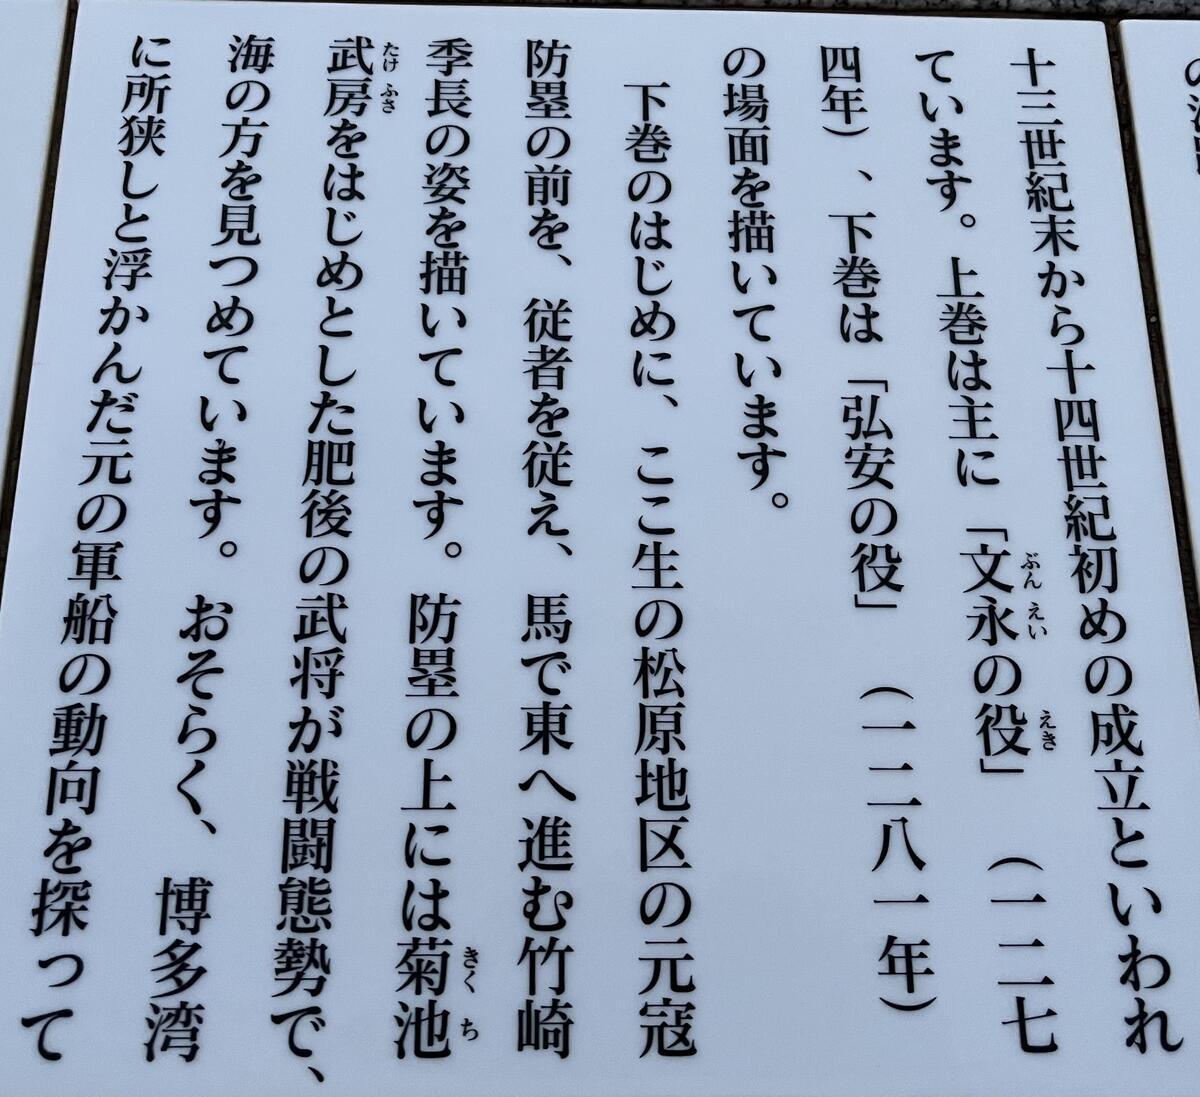 十三世紀末から十四世紀初めの成立といわれ
ています。上巻は主に「文永の役」（一二七
四年）、下巻は「弘安の役」（一二八一年）
の場面を描いています。
下巻のはじめに、ここ生の松原地区の元寇
防塁の前を、従者を従え、馬で東へ進む竹崎
季長の姿を描いています。防塁の上には菊池
武房をはじめとした肥後の武将が戦闘態勢で、
海の方を見つめています。おそらく、博多湾
に所狭しと浮かんだ元の軍船の動向を探って